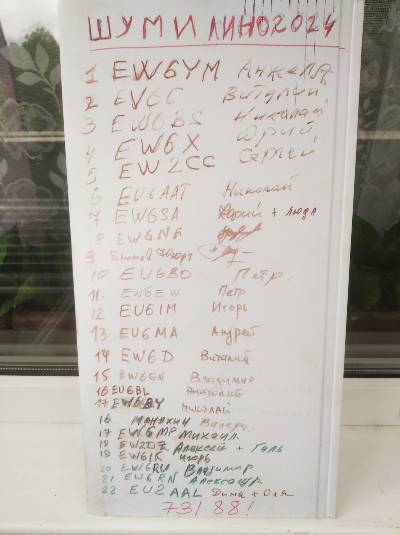 ШУМИЛИНО 2024
1 EW6YM Анжела
2 EV6C Виталий
3 EW6BS Николай
4 EW6X Юрий
5 EW2CC Сергей
6 EU6AAT Николай
7 EW6SA Юрий + Люда
8 EW6NA
9
10 EU6BO Петр.
11. EW6EW Петр
12 EU6IM Игорь
13 EU6MA Андрей
14 EW6D Виталий
15 EW6GN Владимир
16 EU6BL Анатолий
17 EW6BY Николай
16 Манахин Валера
17 EW6MP Михаил
18 EW2DZ Алексей + Галь
19 EW6IR Игорь
20 EW6RU Владимир
21 EW6RN Александр
22 EU2AAL Дима + Оля
73! 88!